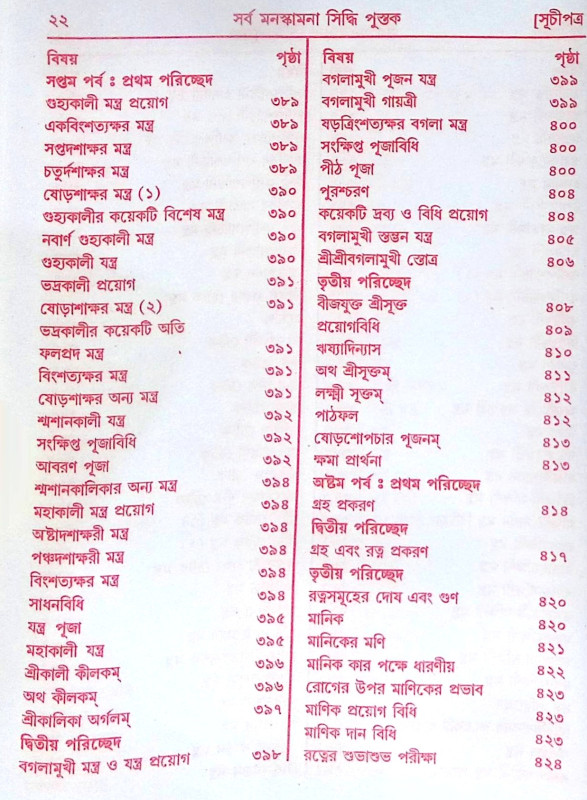 ২২ সর্ব মনস্কামনা সিদ্ধি পুস্তক [সূচীপত্র
বিষয় পৃষ্ঠা
সপ্তম পর্ব : প্রথম পরিচ্ছেদ
গুহ্যকালী মন্ত্র প্রয়োগ ৩৮৯
একবিংশত্যক্ষর মন্ত্র ৩৮৯
সপ্তদশাক্ষর মন্ত্র ৩৮৯
চতুর্দশাক্ষর মন্ত্র ৩৮৯
ষোড়শাক্ষর মন্ত্র (১) ৩৯০
গুহ্যকালীর কয়েকটি বিশেষ মন্ত্র ৩৯০
নবার্ণ গুহ্যকালী মন্ত্র ৩৯০
গুহ্যকালী যন্ত্র ৩৯০
ভদ্রকালী প্রয়োগ ৩৯১
ষোড়াশাক্ষর মন্ত্র (২) ৩৯১
ভদ্রকালীর কয়েকটি অতি
ফলপ্রদ মন্ত্র ৩৯১
বিংশত্যক্ষর মন্ত্র ৩৯১
ষোড়শক্ষর অন্য মন্ত্র ৩৯১
শ্মশানকালী যন্ত্র ৩৯২
সংক্ষিপ্ত পূজাবিধি ৩৯২
আবরণ পূজা ৩৯২
শ্মশানকালিকার অন্য মন্ত্র ৩৯৪
মহাকালী মন্ত্র প্রয়োগ ৩৯৪
অষ্টাদশাক্ষরী মন্ত্র ৩৯৪
পঞ্চদশাক্ষরী মন্ত্র ৩৯৪
বিংশত্যক্ষর মন্ত্র ৩৯৪
সাধনবিধি ৩৯৪
যন্ত্র পূজা ৩৯৫
মহাকালী যন্ত্র ৩৯৫
শ্রীকালী কীলকম্ ৩৯৬
অথ কীলকম্ ৩৯৬
শ্রীকালিকা অর্গলম্ ৩৯৭
দ্বিতীয় পরিচ্ছেদ
বগলামুখী মন্ত্র ও যন্ত্র প্রয়োগ ৩৯৮
বিষয় পৃষ্ঠা
বগলামুখী পূজন যন্ত্র ৩৯৯
বগলামুখী গায়ত্রী ৩৯৯
ষড়ত্রিংশত্যক্ষর বগলা মন্ত্র ৪০০
সংক্ষিপ্ত পূজাবিধি ৪০০
পীঠ পূজা ৪০০
পুরশ্চরণ ৪০৪
কয়েকটি দ্রব্য ও বিধি প্রয়োগ ৪০৪
বগলামুখী স্তম্ভন যন্ত্র ৪০৫
শ্রীশ্রীবগলামুখী স্তোত্র ৪০৬
তৃতীয় পরিচ্ছেদ
বীজযুক্ত শ্রীসূক্ত ৪০৮
প্রয়োগবিধি ৪০৯
ঋষ্যাদিন্যাস ৪১০
অথ শ্রীসূক্তম্ ৪১১
লক্ষ্মী সূক্তম্ ৪১২
পাঠফল ৪১২
ষোড়শোপচার পূজনম্ ৪১৩
ক্ষমা প্রার্থনা ৪১৩
অষ্টম পর্ব : প্রথম পরিচ্ছেদ
গ্রহ প্রকরণ ৪১৪
দ্বিতীয় পরিচ্ছেদ
গ্রহ এবং রত্ন প্রকরণ ৪১৭
তৃতীয় পরিচ্ছেদ
রত্নসমূহের দোষ এবং গুণ ৪২০
মানিক ৪২০
মানিকের মণি ৪২১
মানিক কার পক্ষে ধারণীয় ৪২২
রোগের উপর মাণিকের প্রভাব ৪২৩
মাণিক প্রয়োগ বিধি ৪২৩
মাণিক দান বিধি ৪২৩
রত্নের শুভাশুভ পরীক্ষা ৪২৪